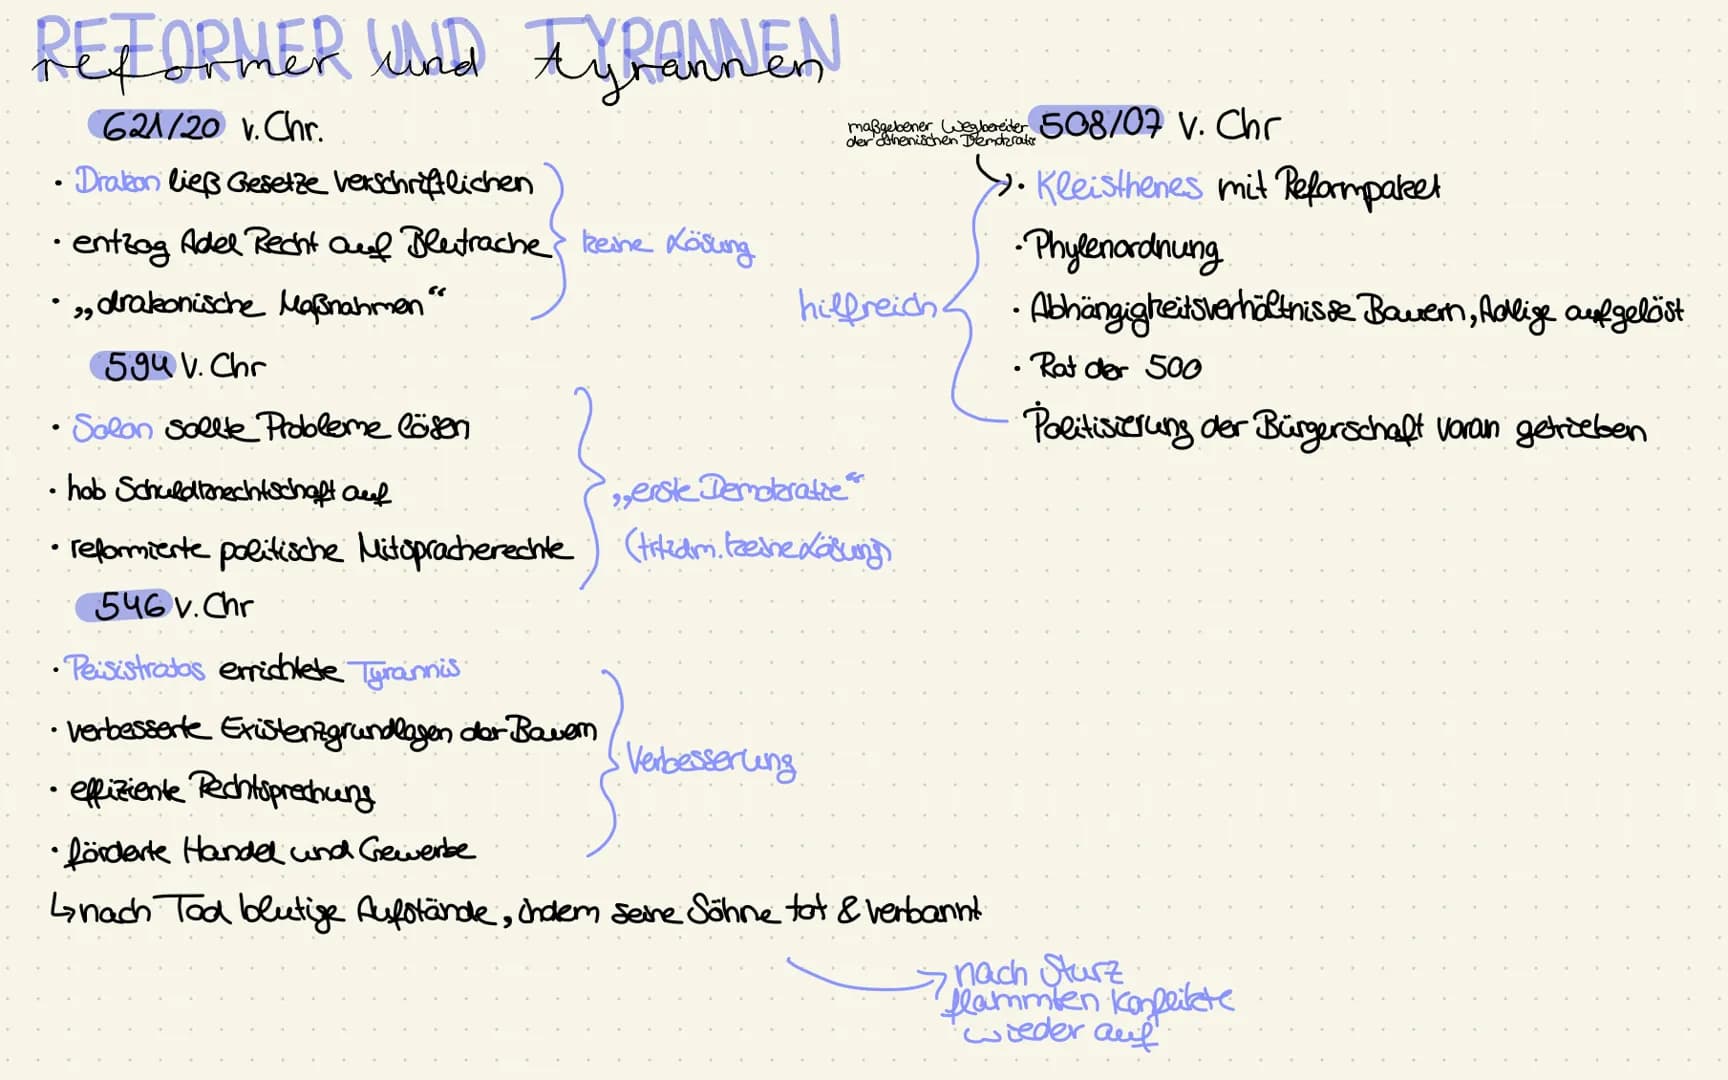 REFORMER UND TYRANNEN
reformer und tyrannen
621/20 v. Chr.
• Drakon ließ Gesetze verschriftlichen
• entzog Adel Recht auf Blutrache
• „drakonische Maßnahmen“
keine Lösung
594 v. Chr
• Solon sollte Probleme lösen
• hob Schuldknechtschaft auf
• reformierte politische Mitspracherechte
„erste Demokratie“
(trtzdm. keine Lösung)
546 v. Chr
• Peisistratos errichtete Tyrannis
• verbesserte Existenzgrundlagen der Bauern
• effiziente Rechtsprechung
• förderte Handel und Gewerbe
Verbesserung
↳ nach Tod blutige Aufstände, indem seine Söhne tot & verbannt
→ nach Sturz
flammten Konflikte
wieder auf
508/07 v. Chr
maßgebener Wegbereiter
der athenischen Demokratie
• Kleisthenes mit Reformpaket
• Phylenordnung
• Abhängigkeitsverhältnisse Bauern, Adlige aufgelöst
• Rat der 500
• Politisierung der Bürgerschaft voran getrieben
hilfreich